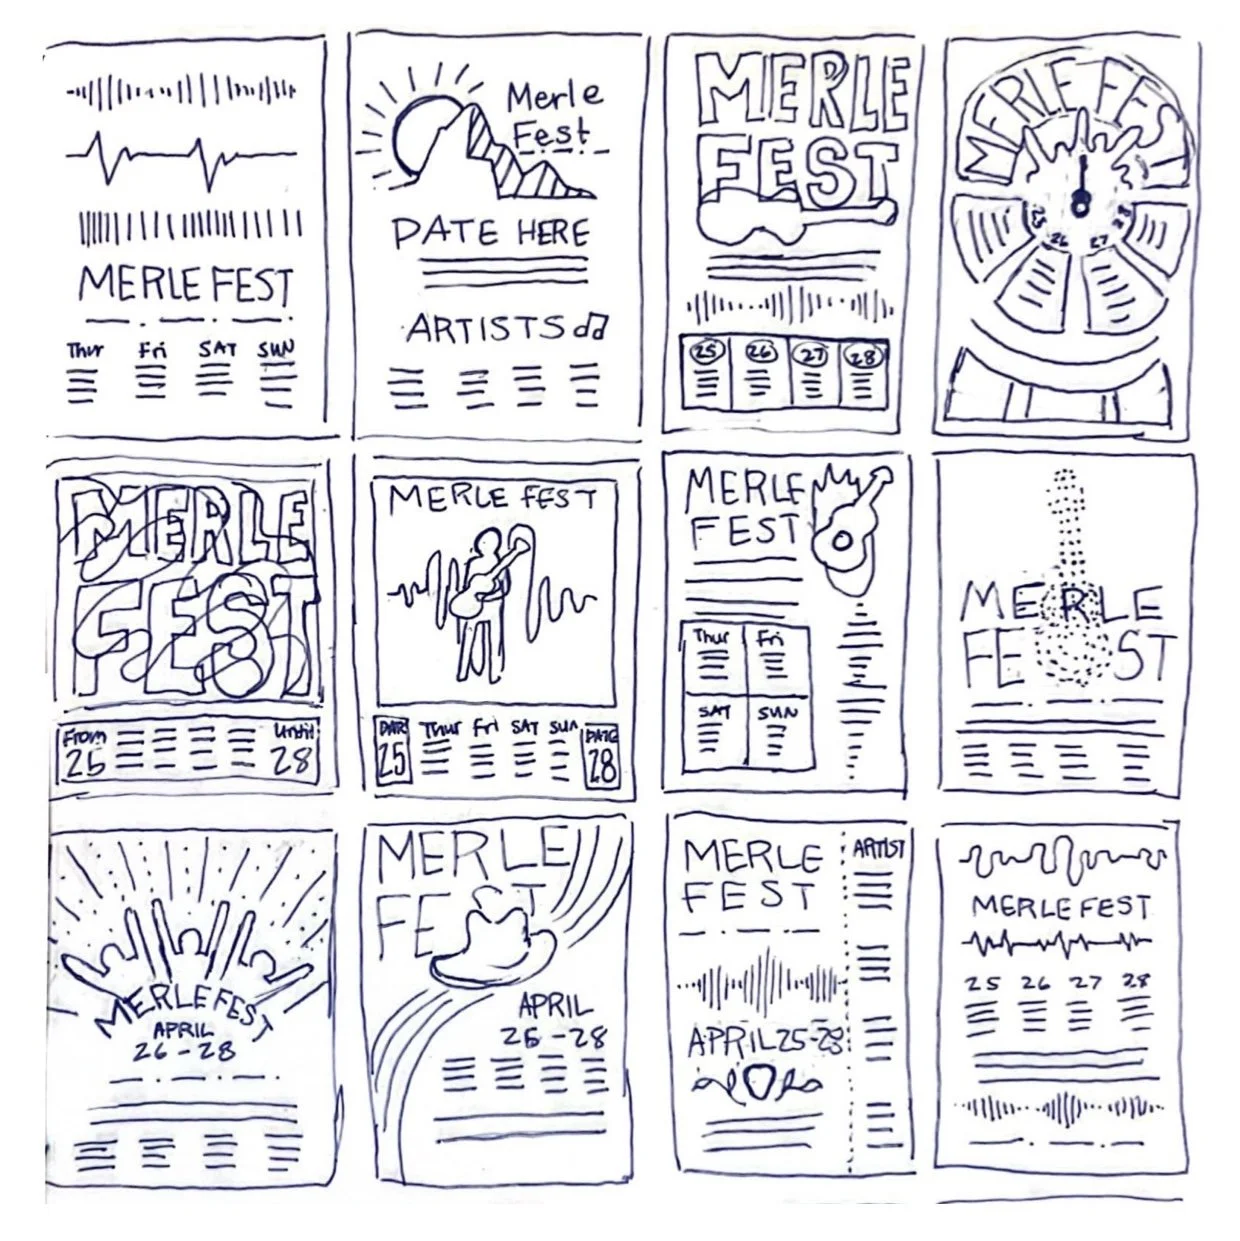 MERLE FEST
Thur Fri SAT SUN
Merle
Fest
DATE HERE
ARTISTS
MERLE
FEST
25 26 27 28
MERLE FES
25 26 27 28
MERLE
FEST
From Until
25 28
MERLE FEST
DATE Thur Fri SAT SUN DATE
25 28
MERLE
FEST
Thur Fri
SAT SUN
MERLE
FEST
MERLE FEST
APRIL
26-28
MERLE
FEST
APRIL
26-28
MERLE
FEST
ARTIST
APRIL 25-28
MERLE FEST
25 26 27 28